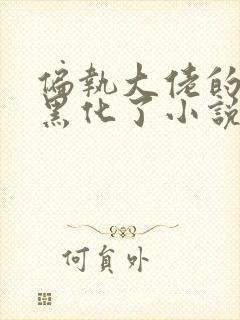 偏執大佬的
黑化了小說
何員外